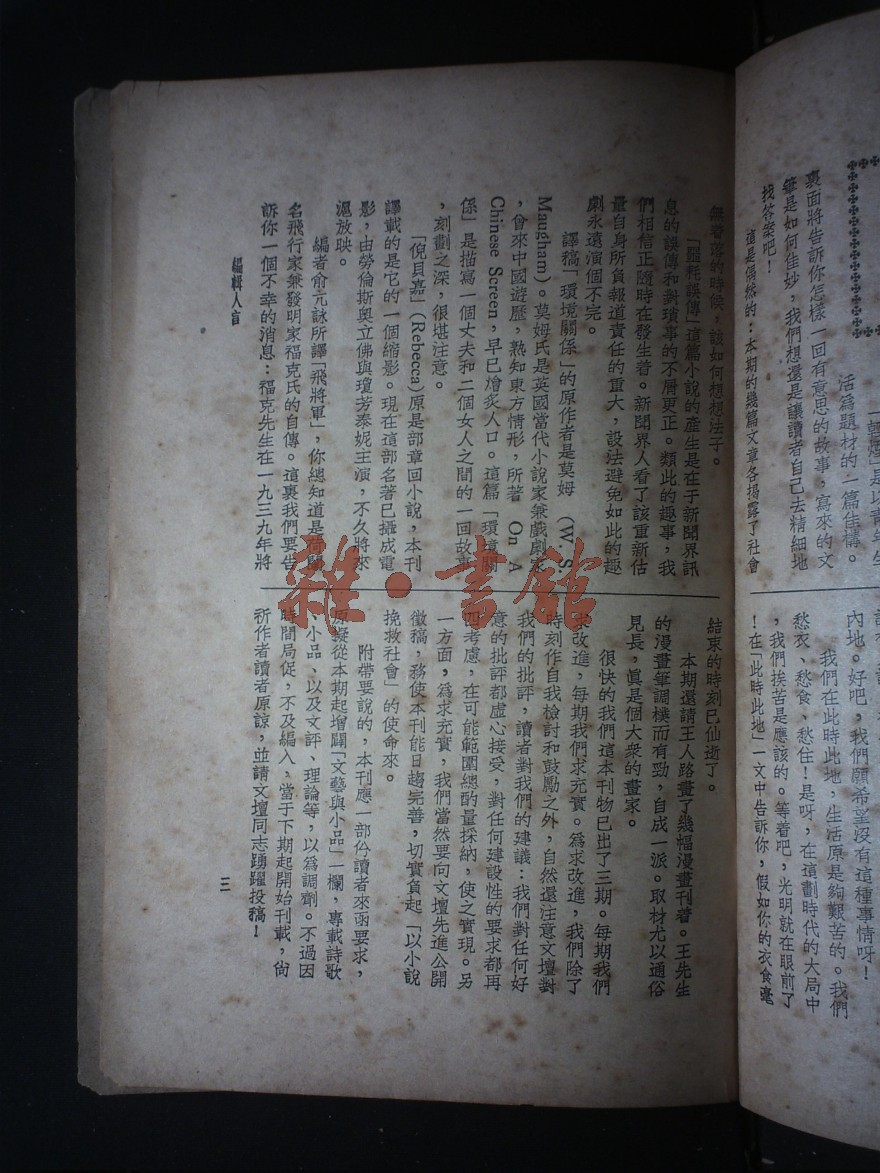 是以青年生
活為題材的一篇佳構。
裏面將告訴你怎樣一回有意思的故事，寫來的文
筆是如何佳妙，我們想還是讓讀者自己去精細地
找答案吧！
這是偶然的：本期的幾篇文章各揭露了社會
內地。好吧，我們願希望沒有這種事情呀！
我們在此時此地，生活原是夠艱苦的。我們
愁衣、愁食、愁住！是呀，在這劃時代的大局中
，我們挨苦是應該的。等着吧，光明就在眼前了
！在「此時此地」一文中告訴你，假如你的衣食毫
無着落的時候，該如何想想法子。
「噩耗誤傳」這篇小說的產生是在于新聞界訊
息的誤傳和對瑣事的不屑更正。類此的趣事，我
們相信正隨時在發生着。新聞界人看了該重新估
量自身所負報道責任的重大，設法避免如此的趣
劇永遠演個不完。
譯稿「環境關係」的原作者是莫姆 （W. S.
Maugham）。莫姆氏是英國當代小說家兼戲劇家
，曾來中國遊歷，熟知東方情形，所著 On A
Chinese Screen，早已燴炙人口。這篇「環境關
係」是描寫一個丈夫和二個女人之間的一回故事
，刻劃之深，很堪注意。
「倪貝嘉」（Rebecca）原是部章回小說，本刊
譯載的是它的一個縮影。現在這部名著已攝成電
影，由勞倫斯奧立佛與瓊芳泰妮主演，不久將來
滬放映。
編者俞元詠所譯「飛將軍」，你總知道是荷蘭
名飛行家兼發明家福克氏的自傳。這裏我們要告
訴你一個不幸的消息：福克先生在一九三九年將
結束的時刻已仙逝了。
本期還請王人路畫了幾幅漫畫刊着。王先生
的漫畫筆調樸而有勁，自成一派。取材尤以通俗
見長，眞是個大衆的畫家。
很快的我們這本刊物已出了三期。每期我們
求改進，每期我們求充實。為求改進，我們除了
時刻作自我檢討和鼓勵之外，自然還注意文壇對
我們的批評，讀者對我們的建議：我們對任何好
意的批評都虛心接受，對任何建設性的要求都再
四考慮，在可能範圍總酌量採納，使之實現。另
一方面，為求充實，我們當然要向文壇先進公開
徵稿，務使本刊能日趨完善，切實負起「以小說
挽救社會」的使命來。
附帶要說的，本刊應一部份讀者來函要求，
原擬從本期起增闢「文藝與小品」一欄，專載詩歌
、小品、以及文評、理論等，以為調劑。不過因
時間局促，不及編入，當于下期起開始刊載，尙
祈作者讀者原諒，並請文壇同志踴躍投稿！
編輯人言
三
雜·書館